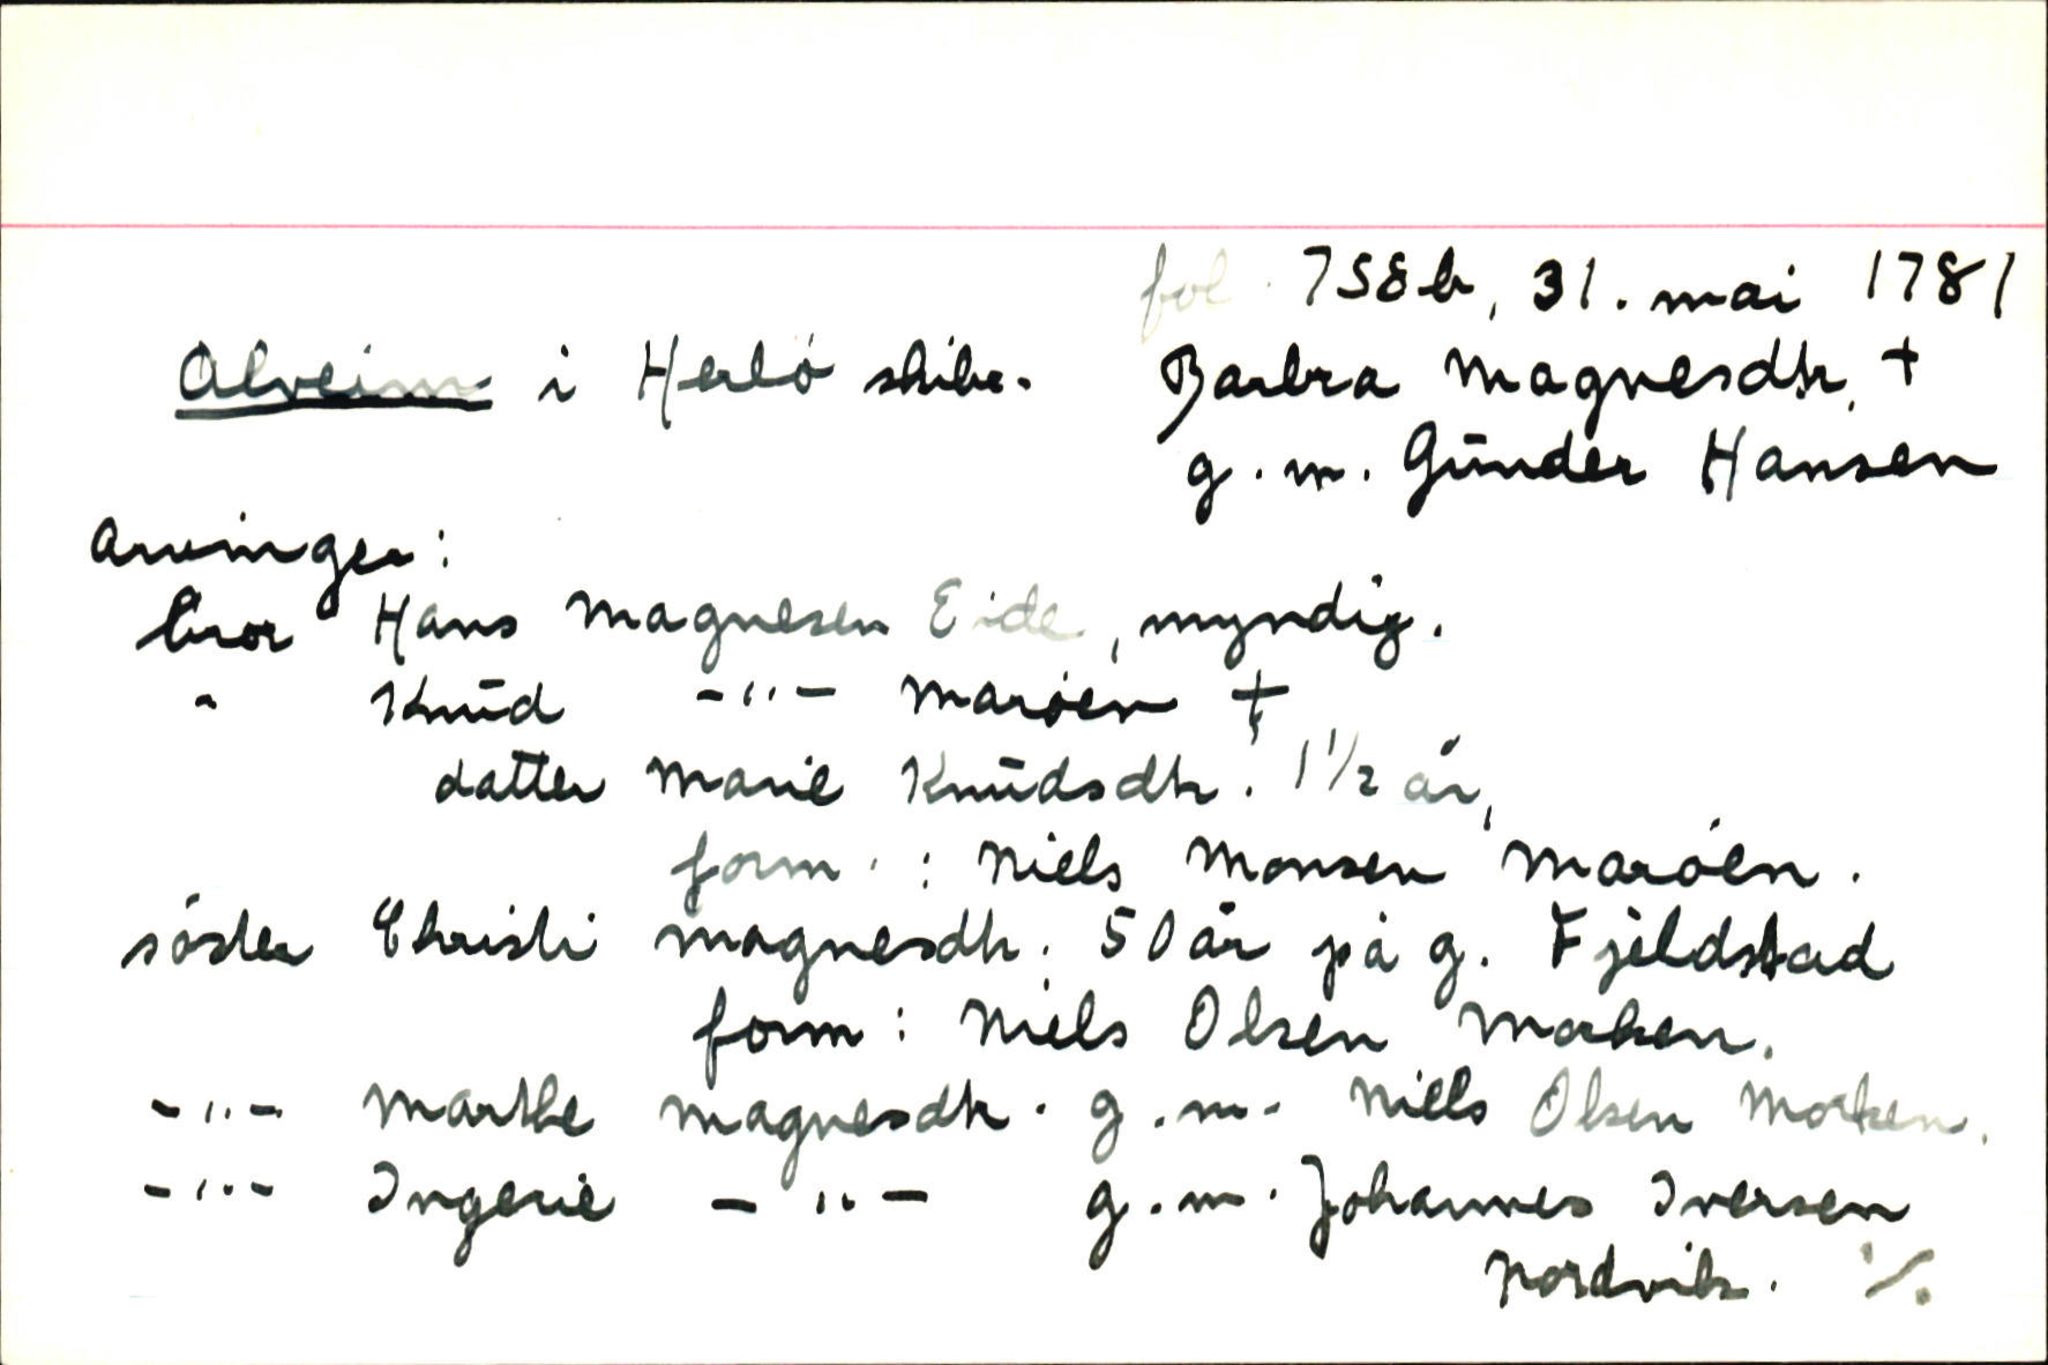 fol. 758b, 31. mai 1781
Alveim i Herlö skibr. Barbra Magnesdtr. +
g. m. Gūnder Hansen
Arvinger:
bror Hans Magnesen Eide, myndig.
" Knūd -"- Maröen +
datter Marie Knūdsdtr. 1 1/2 år,
form.: Niels Monsen Maröen.
söster Christi Magnesdtr. 50 år på g. Fjeldstad
form: Niels Olsen Morken.
-"- Marthe Magnesdtr. g.m. Niels Olsen Morken.
-"- Ingerie -"- g.m. Johannes Iversen
Nordvik. ./.